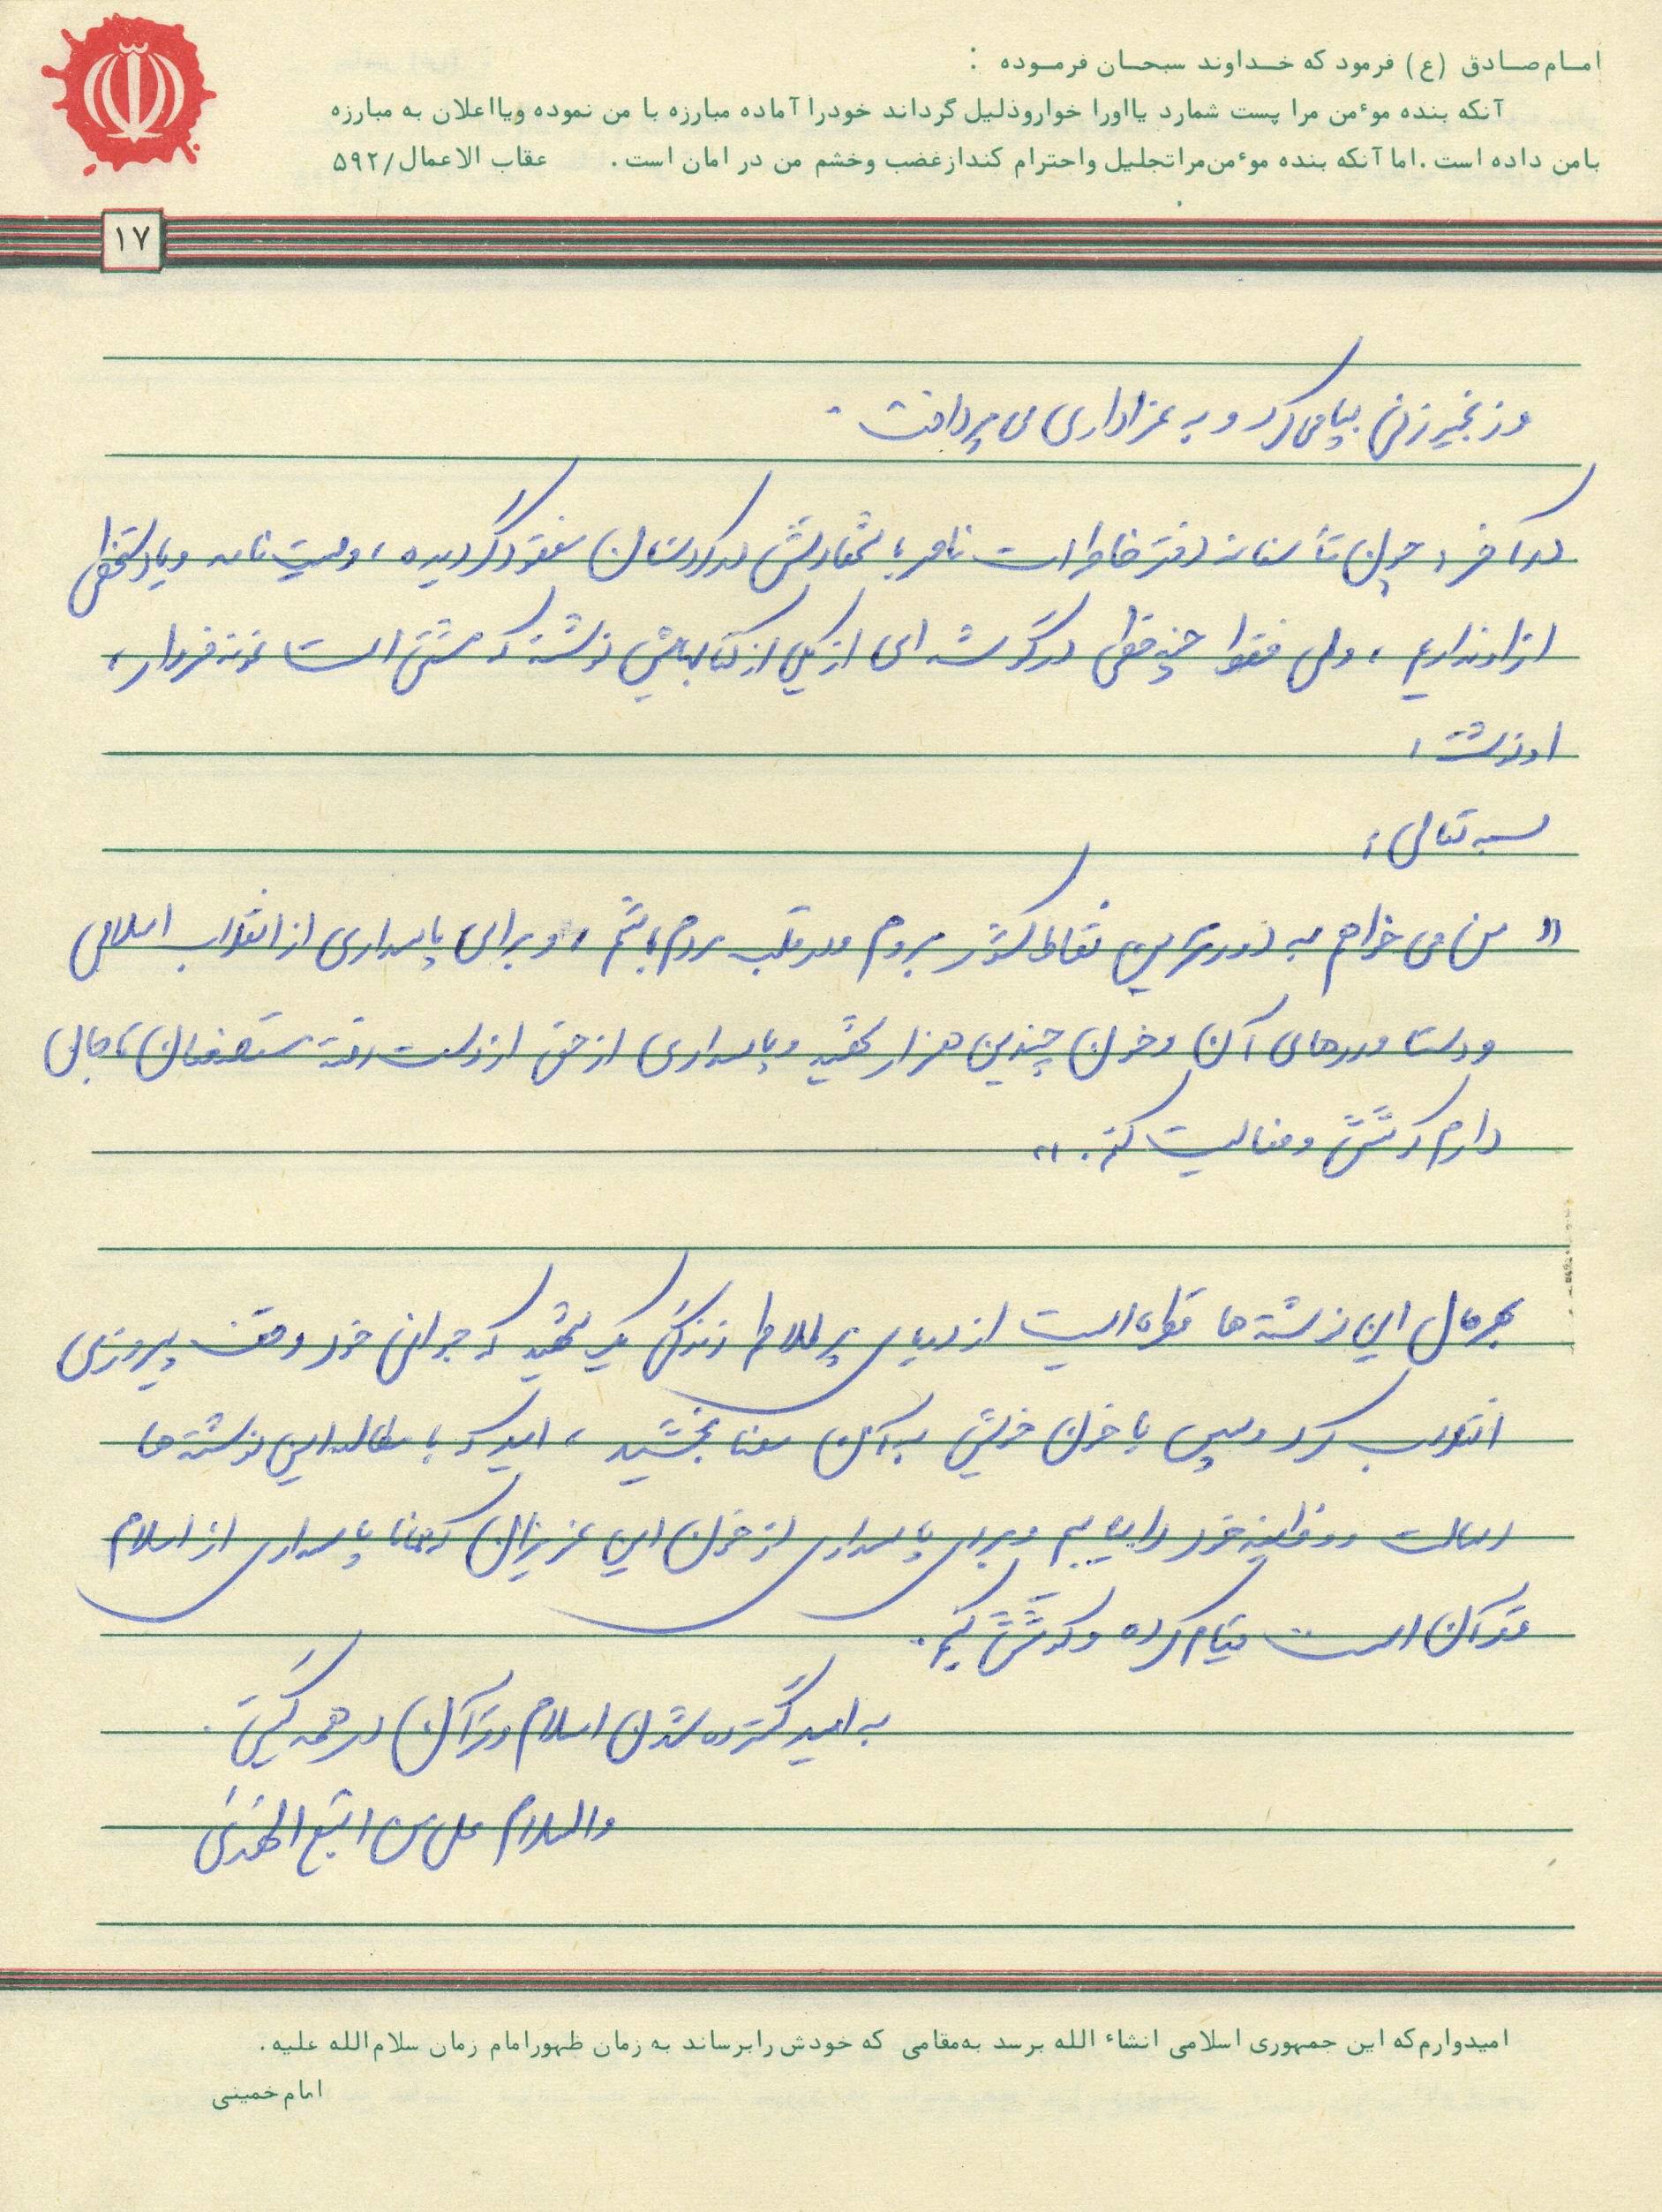 امام صادق (ع) فرمود که خداوند سبحان فرموده :
آنکه بنده موءمن مرا پست شمارد یااورا خواروذلیل گرداند خودرا آماده مبارزه با من نموده ویااعلان به مبارزه
بامن داده است . اما آنکه بنده موءمن مراتجلیل واحترام کندازغضب وخشم من در امان است . عقاب الاعمال/۵۹۲
۱۷
وزنجیرزنی بپا می کرد و به عزاداری می پرداخت .
در آخر ، چون متأسفانه دفتر خاطرات ناصر با شهادتش در کردستان مفقود گردیده ، وصیت نامه و یا دستخطی
از او نداریم ، ولی فقط چند خطی در گوشه ای از یکی از کتابهایش نوشته که مشتی است نمونه خروار ،
او نوشت :
بسمه تعالی :
" من می خواهم به دورترین نقاط کشور بروم و در قلب مردم باشم ، و برای پاسداری از انقلاب اسلامی
و دستاوردهای آن و خون چندین هزار شهید و پاسداری از حق از دست رفته مستضعفان تا جان
دارم کوشش و فعالیت کنم . "
بهرحال این نوشته ها قطره ایست از دریای پر تلاطم زندگی یک شهید که جوانی خود وقف پیروزی
انقلاب کرد و سپس با خون خویش به آن معنا بخشید ، امید که با مطالعه این نوشته ها
رسالت و وظیفه خود را بیابیم و برای پاسداری از خون این عزیزان که همانا پاسداری از اسلام
و قرآن است قیام کرده و کوشش کنیم .
به امید گسترده شدن اسلام و قرآن در همه گیتی .
والسلام علی من اتبع الهدی
امیدوارم که این جمهوری اسلامی انشاء الله برسد به مقامی که خودش رابرساند به زمان ظهورامام زمان سلام الله علیه .
امام خمینی